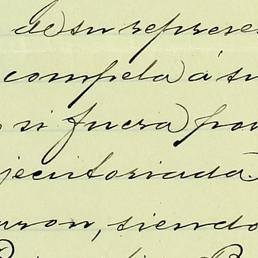 de su represe
compela á su
si fuera por
jecutoriada
uron, siendo